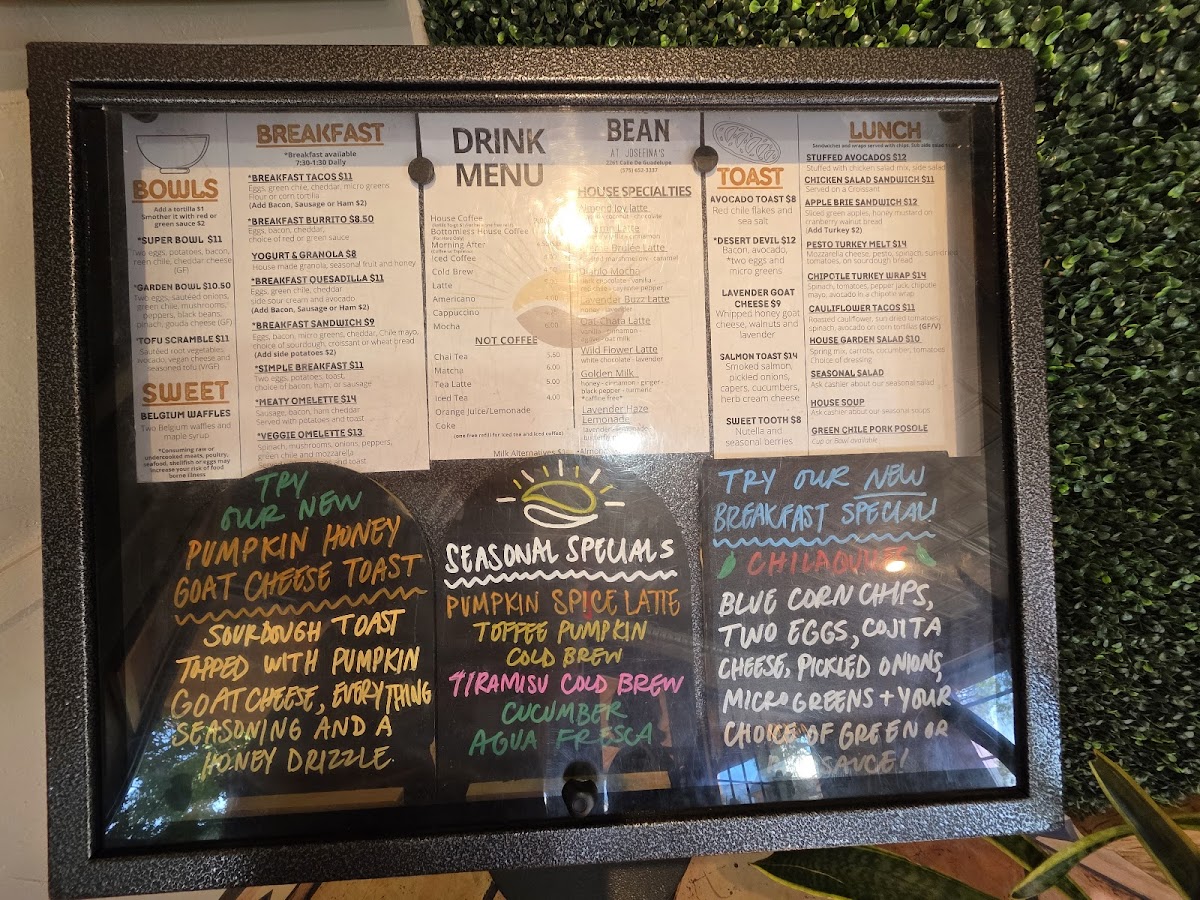 BOWLS
Add a tortilla $1
Smother it with red or
green sauce $2
*SUPER BOWL $11
Two eggs, potatoes, bacon,
green chile, cheddar cheese
(GF)
*GARDEN BOWL $10.50
Two eggs, sautéed onions,
green chile, mushrooms,
peppers, black beans,
spinach, gouda cheese (GF)
*TOFU SCRAMBLE $11
Sautéed root vegetables,
avocado, vegan cheese and
seasoned tofu (V/GF)
SWEET
BELGIUM WAFFLES
Two Belgium waffles and
maple syrup
*Consuming raw or
undercooked meats, poultry,
seafood, shellfish or eggs may
increase your risk of food
borne illness
BREAKFAST
*Breakfast available
7:30-1:30 Daily
*BREAKFAST TACOS $11
Eggs, green chile, cheddar, micro greens
Flour or corn tortilla
(Add Bacon, Sausage or Ham $2)
*BREAKFAST BURRITO $8.50
Eggs, bacon, cheddar,
choice of red or green sauce
YOGURT & GRANOLA $8
House made granola, seasonal fruit and honey
*BREAKFAST QUESADILLA $11
Eggs, green chile, cheddar
side sour cream and avocado
(Add Bacon, Sausage or Ham $2)
*BREAKFAST SANDWICH $9
Eggs, bacon, micro greens, cheddar, Chile mayo,
choice of sourdough, croissant or wheat bread
(Add side potatoes $2)
*SIMPLE BREAKFAST $11
Two eggs, potatoes, toast,
choice of bacon, ham, or sausage
*MEATY OMELETTE $14
Sausage, bacon, ham cheddar
Served with potatoes and toast
*VEGGIE OMELETTE $13
Spinach, mushrooms, onions, peppers,
green chile and mozzarella
toast
DRINK
MENU
House Coffee
Bottomless House Coffee
Morning After
Iced Coffee
Cold Brew
Latte
Americano
Cappuccino
Mocha
NOT COFFEE
Chai Tea 3.50
Matcha 6.00
Tea Latte 5.00
Iced Tea 4.00
Orange Juice/Lemonade
Coke
(one free refill for iced tea and iced coffee)
Milk Alternatives
BEAN
AT JOSEFINA'S
2261 Calle De Guadalupe
HOUSE SPECIALTIES
Almond Joy latte
Latte
Brulée Latte
Diablo Mocha
Lavender Buzz Latte
Oat-Chata Latte
Wild Flower Latte
white chocolate - lavender
Golden Milk
honey - cinnamon - ginger -
black pepper - turmeric
*caffeine free*
Lavender Haze
Lemonade
TOAST
AVOCADO TOAST $8
Red chile flakes and
sea salt
*DESERT DEVIL $12
Bacon, avocado,
*two eggs and
micro greens
LAVENDER GOAT
CHEESE $9
Whipped honey goat
cheese, walnuts and
lavender
SALMON TOAST $14
Smoked salmon,
pickled onions,
capers, cucumbers,
herb cream cheese
SWEET TOOTH $8
Nutella and
seasonal berries
LUNCH
STUFFED AVOCADOS $12
Stuffed with chicken salad mix, side salad
CHICKEN SALAD SANDWICH $11
Served on a Croissant
APPLE BRIE SANDWICH $12
Sliced green apples, honey mustard on
cranberry walnut bread
(Add Turkey $2)
PESTO TURKEY MELT $14
Mozzarella cheese, pesto, spinach, sundried
tomatoes, on sourdough bread
CHIPOTLE TURKEY WRAP $14
Spinach, tomatoes, pepper jack, chipotle
mayo, avocado in a chipotle wrap
CAULIFLOWER TACOS $11
Roasted cauliflower, sun dried tomatoes,
spinach, avocado on corn tortillas (GF/V)
HOUSE GARDEN SALAD $10
Spring mix, carrots, cucumber, tomatoes
Choice of dressing
SEASONAL SALAD
Ask cashier about our seasonal salad
HOUSE SOUP
Ask cashier about our seasonal soups
GREEN CHILE PORK POSOLE
Cup or Bowl available
TRY
OUR NEW
PUMPKIN HONEY
GOAT CHEESE TOAST
SOURDOUGH TOAST
TOPPED WITH PUMPKIN
GOAT CHEESE, EVERYTHING
SEASONING AND A
HONEY DRIZZLE.
SEASONAL SPECIALS
PUMPKIN SPICE LATTE
TOFFEE PUMPKIN
COLD BREW
TIRAMISU COLD BREW
CUCUMBER
AGUA FRESCA
TRY OUR NEW
BREAKFAST SPECIAL!
CHILAQUILES
BLUE CORN CHIPS,
TWO EGGS, COJITA
CHEESE, PICKLED ONIONS,
MICRO GREENS + YOUR
CHOICE OF GREEN OR
RED SAUCE!